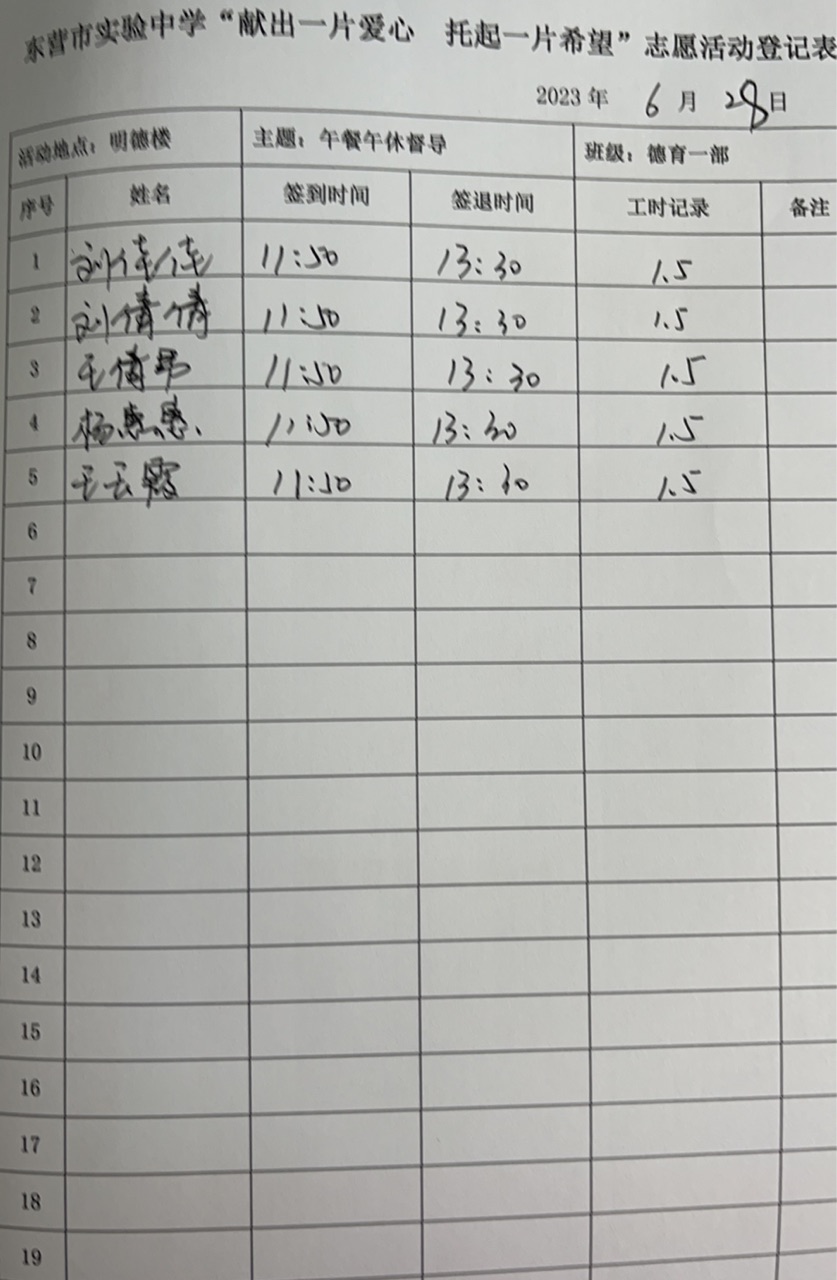 东营市实验中学“献出一片爱心 托起一片希望”志愿活动登记表
2023 年 6 月 28 日
活动地点：明德楼 主题：午餐午休督导 班级：德育一部
序号 姓名 签到时间 签退时间 工时记录 备注
1 刘佳佳 11:50 13:30 1.5
2 刘倩倩 11:50 13:30 1.5
3 王倩 11:50 13:30 1.5
4 杨惠惠 11:50 13:30 1.5
5 王云霞 11:50 13:30 1.5
6
7
8
9
10
11
12
13
14
15
16
17
18
19